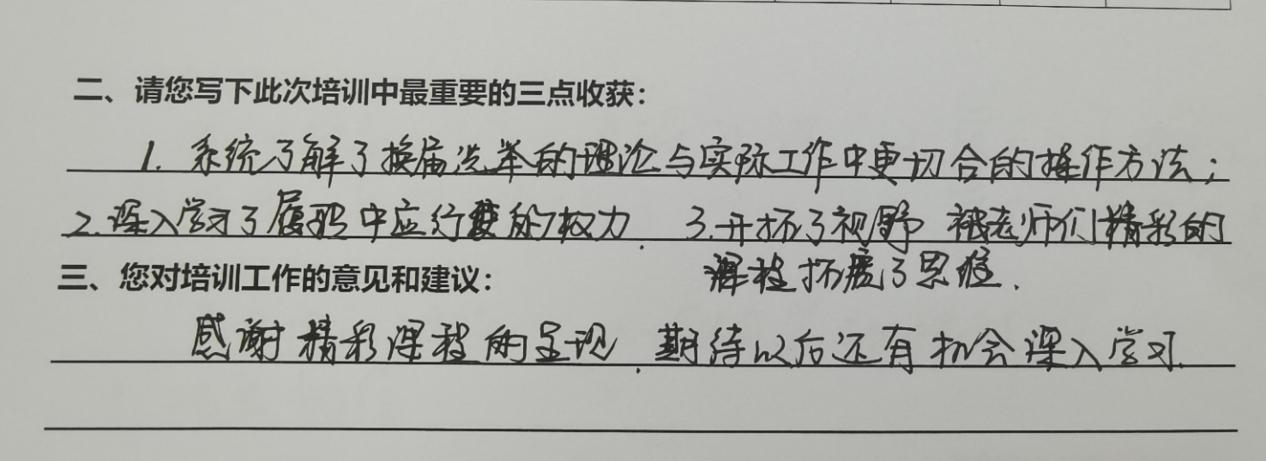 二、请您写下此次培训中最重要的三点收获：
1. 系统了解了换届选举的理论与实际工作中更切合的操作方法；
2.深入学习了履职中应行使的权力. 3.开拓了视野 被老师们精彩的
课程拓展了思维.
三、您对培训工作的意见和建议：
感谢精彩课程的呈现. 期待以后还有机会深入学习.